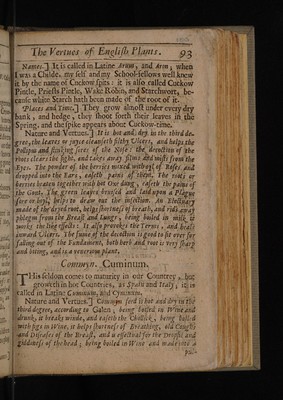 The Vertues of English Plants. 93
Names.] It is called in Latine Arum, and Aron; when
I was a Childe, my self and my School-fellows well knew
it by the name of Cuckow spits: it is also called Cuckow
Pintle, Priests Pintle, Wake Robin, and Starchwort, be-
cause white Starch hath been made of the root of it.
Places and Time.] They grow almost under every dry
bank, and hedge, they shoot forth their leaves in the
Spring, and the spike appears about Cuckow-time.
Nature and Vertues.] It is hot and dry in the third de-
gree, the leaves or juyce cleanseth filthy Ulcers, and helps the
Pollipus and stinking sores of the Nose: the decoction of the
roots clears the sight, and takes away films and mists from the
Eyes. The powder of the berries mixed with oyl of Roses and
dropped into the Ears, easeth pains of them. The roots or
berries beaten together with hot Ox dung, easeth the pains of
the Gout. The green leaves bruised and laid upon a Plague
sore or boyl, helps to draw out the infection. An Electuary
made of the dryed root, helps shortness of breath, and rids away
phlegm from the Breast and Lungs, being boiled in milk it
works the like effects: It also provokes the Terms, and heals
inward Ulcers. The fume of the decoction is good to sit over for
falling out of the Fundament, both herb and root is very sharp
and biting, and is a venerous plant.
Commyn. Cuminum.
THis seldom comes to maturity in our Countrey, but
groweth in hot Countries, as Spain and Italy; it is
called in Latine Cuminum, and Cyminum.
Nature and Vertues.] Commyn seed is hot and dry in the
third degree, according to Galen, being boiled in Wine and
drunk, it breaks winde, and easeth the Chollick, being boil'd
with figs in Wine, it helps shortness of Breathing, old Coughs
and Diseases of the Breast, and is effectual for the Dropsie and
giddiness of the head; being boiled in Wine and made into a